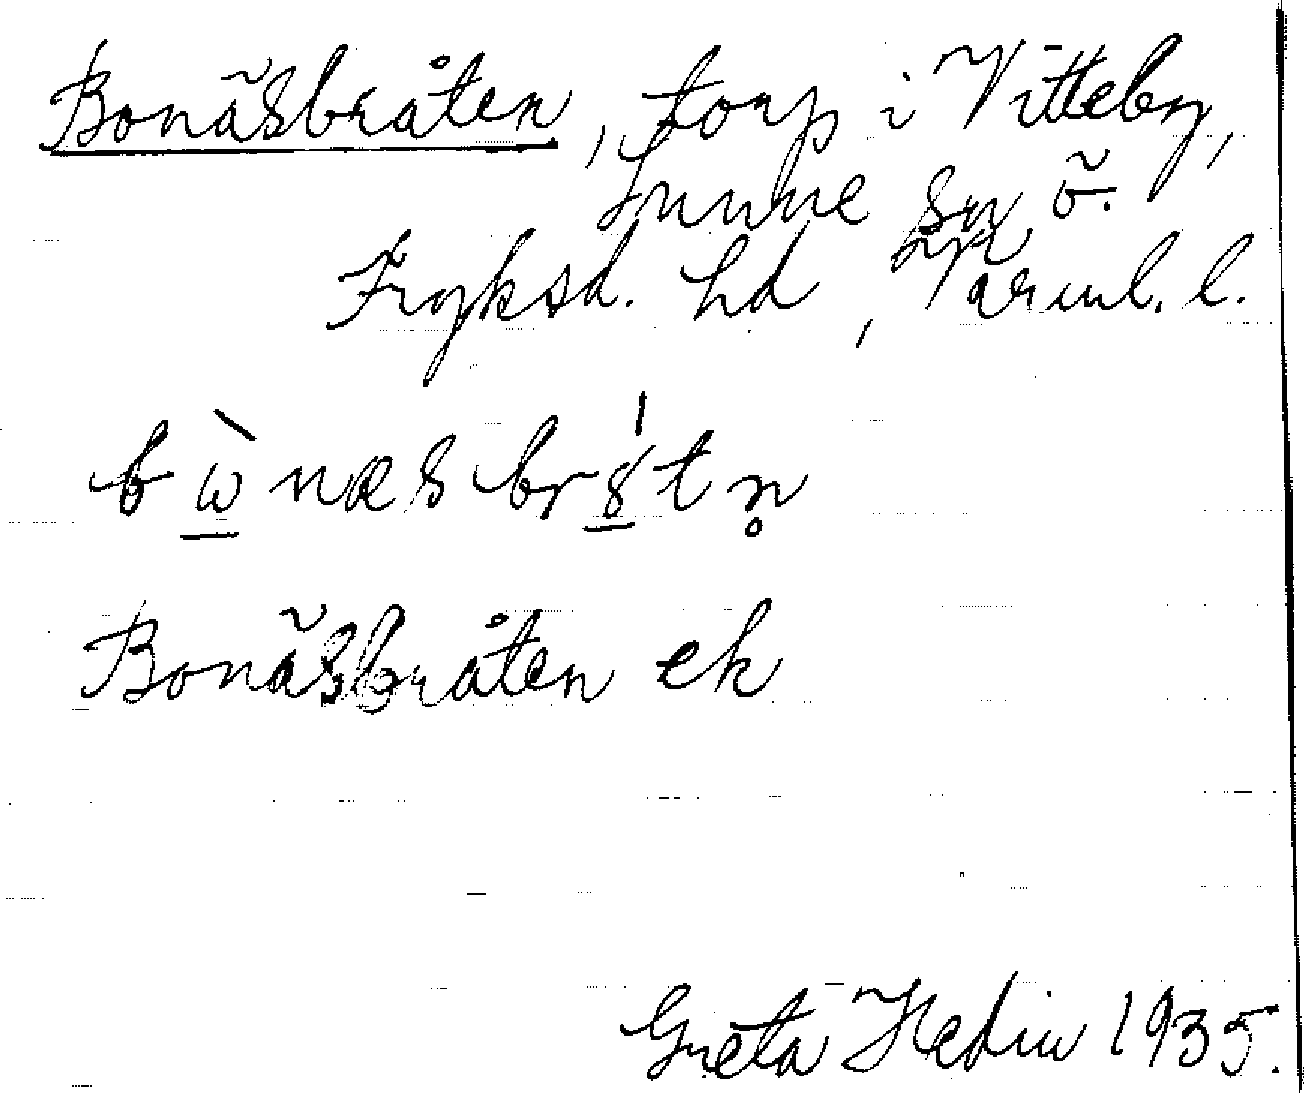 Bonäsbråten, torp i Vitteby,
Sunne sn ö.
Fryksd. hd, Värml. l.
bὼnæsbrȣ́tn̥
Bonäsbråten ek
Greta Hedin 1935.